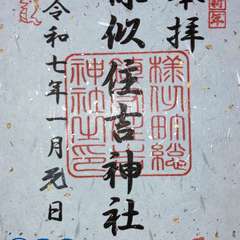 奉拝
様似住吉神社
令和七年一月元日
様似町総
神社之印
新年